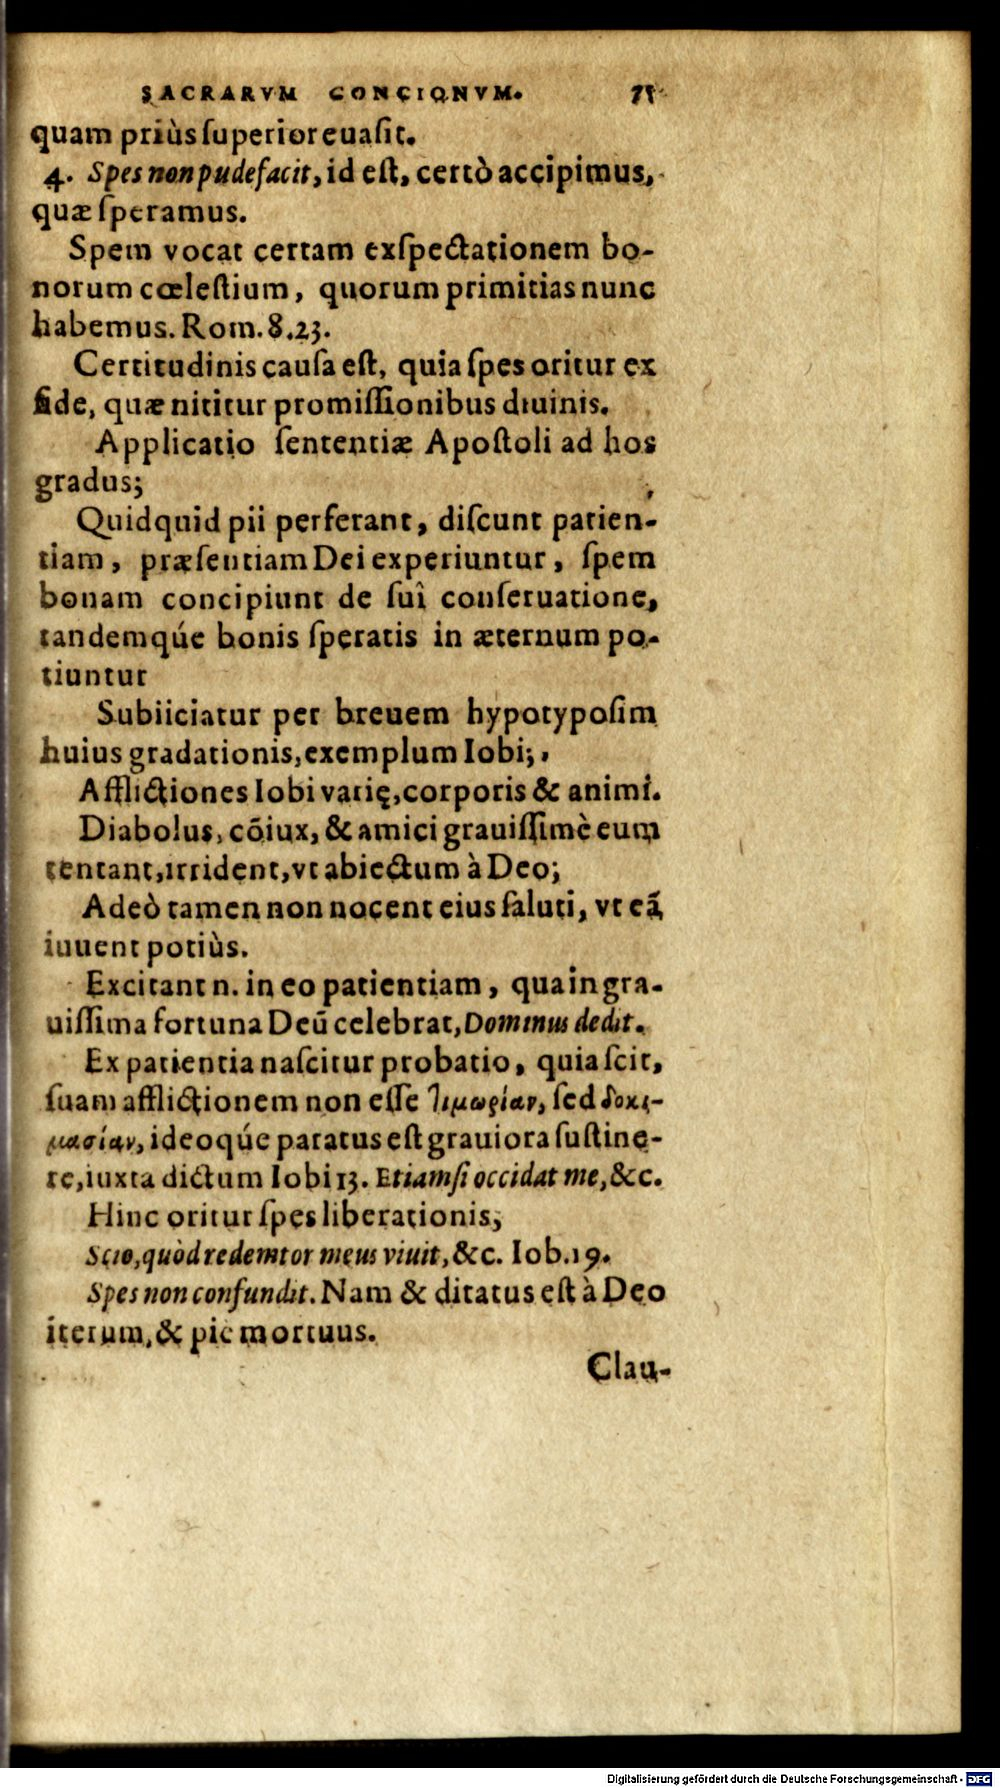 SACRARVM CONCIONVM. 75
quam priùs ſuperior euaſit.
4. Spes non pudefacit, id eſt, certò accipimus,
quæ ſperamus.
Spem vocat certam exſpectationem bo-
norum cœleſtium, quorum primitias nunc
habemus. Rom. 8.23.
Certitudinis cauſa eſt, quia ſpes oritur ex
fide, quæ nititur promiſſionibus diuinis.
Applicatio ſententiæ Apoſtoli ad hos
gradus;
Quidquid pii perferant, diſcunt patien-
tiam, præſentiam Dei experiuntur, ſpem
bonam concipiunt de ſuî conſeruatione,
tandemqúe bonis ſperatis in æternum po-
tiuntur
Subiiciatur per breuem hypotypoſim
huius gradationis, exemplum Iobi;
Afflictiones Iobi varię, corporis & animi.
Diabolus, cõiux, & amici grauiſſimè eum
tentant, irrident, vt abiectum à Deo;
Adeò tamen non nocent eius ſaluti, vt eã
iuuent potiùs.
Excitant n. in eo patientiam, qua in gra-
uiſſima fortuna Deũ celebrat, Dominus dedit.
Ex patientia naſcitur probatio, quia ſcit,
ſuam afflictionem non eſſe τιμωρίαν, ſed δοκι-
μασίαν, ideoqúe paratus eſt grauiora ſuſtine-
re, iuxta dictum Iobi 13. Etiamſi occidat me, &c.
Hinc oritur ſpes liberationis,
Scio, quòd redemtor meus viuit, &c. Iob. 19.
Spes non confundit. Nam & ditatus eſt à Deo
iterum, & pie mortuus.
Clau-
Digitalisierung gefördert durch die Deutsche Forschungsgemeinschaft - DFG